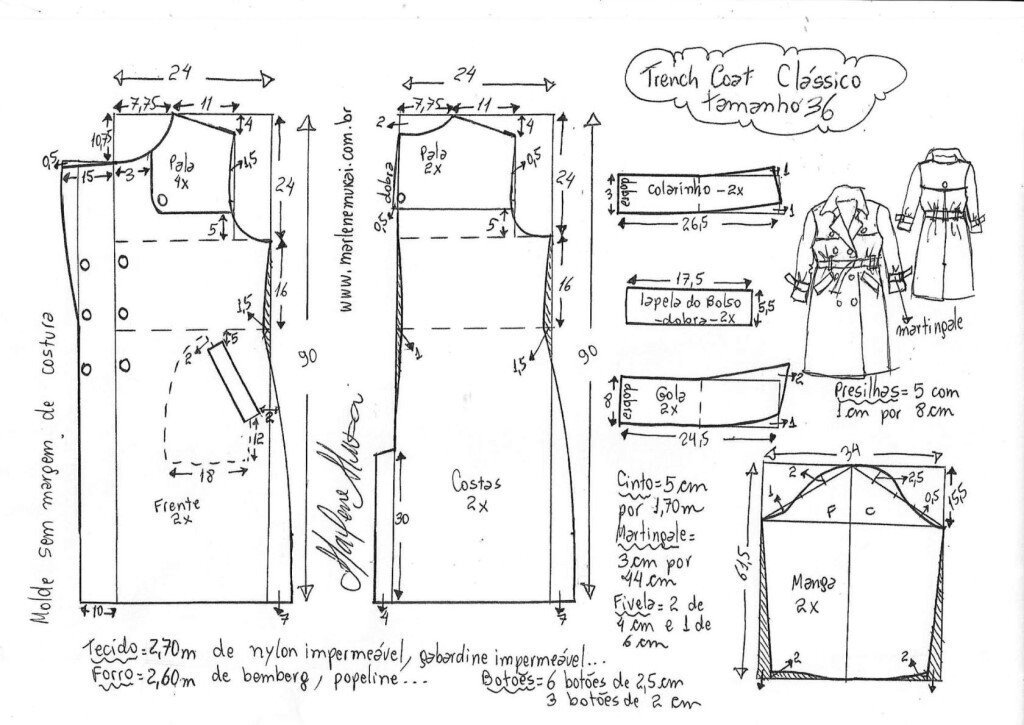 Trench Coat Clássico
tamanho 36
24
7,75
11
10,75
4
0,5
15
3
Pala
4x
1,5
24
5
16
1,5
90
5
2
2
12
18
Frente
2x
10
7
Molde sem margem de costura
www.marlenemukai.com.br
Marlene Mukai
24
7,75
11
2
4
Pala
2x
0,5
dobra
0,5
24
5
16
1
1,5
90
Costas
2x
30
4
7
dobra
3
Colarinho - 2x
1
1
26,5
17,5
lapela do Bolso
-dobra-2x
5,5
dobra
8
Gola
2x
2
1
24,5
martingale
Presilhas= 5 com
1 cm por 8 cm
Cinto= 5 cm
por 1,70m
Martingale=
3 cm por
44 cm
Fivela= 2 de
4 cm e 1 de
6 cm
34
2
2,5
1
0,5
F
C
15,5
61,5
Manga
2x
2
2
Tecido= 2,70m de nylon impermeável, gabardine impermeável...
Forro= 2,60m de bemberg, popeline...
Botões= 6 botões de 2,5 cm
3 botões de 2 cm